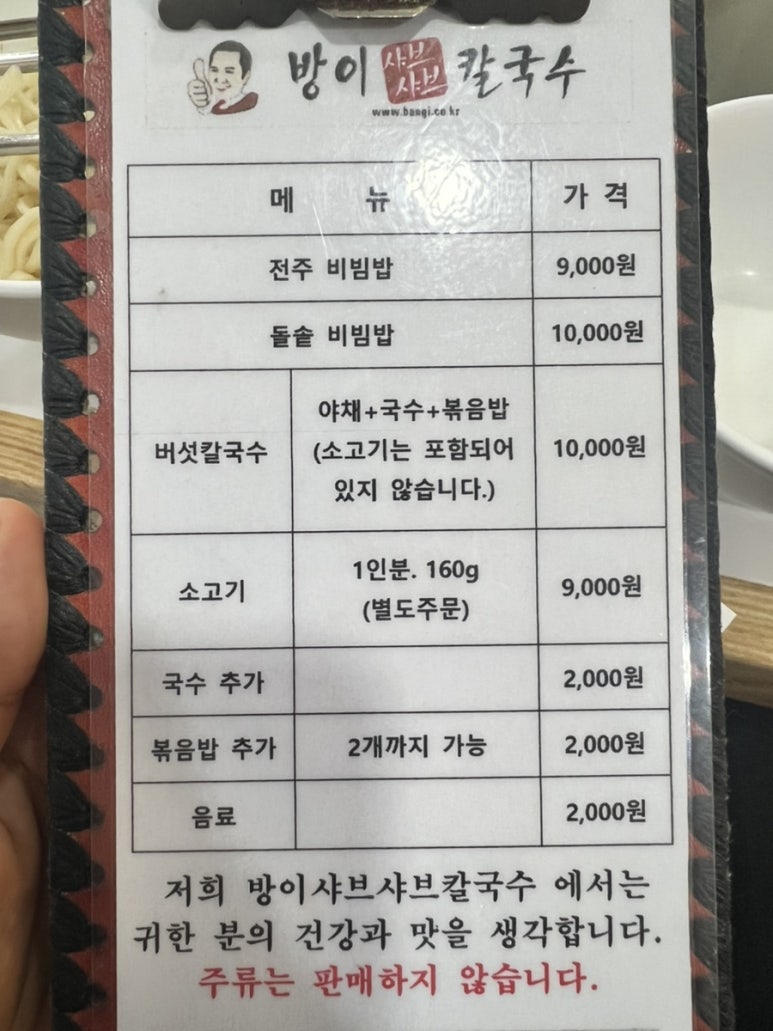 방이 샤브샤브 칼국수
www.bangi.co.kr
메 뉴 가 격
전주 비빔밥 9,000원
돌솥 비빔밥 10,000원
버섯칼국수 야채+국수+볶음밥
(소고기는 포함되어
있지 않습니다.) 10,000원
소고기 1인분. 160g
(별도주문) 9,000원
국수 추가 2,000원
볶음밥 추가 2개까지 가능 2,000원
음료 2,000원
저희 방이샤브샤브칼국수 에서는
귀한 분의 건강과 맛을 생각합니다.
주류는 판매하지 않습니다.